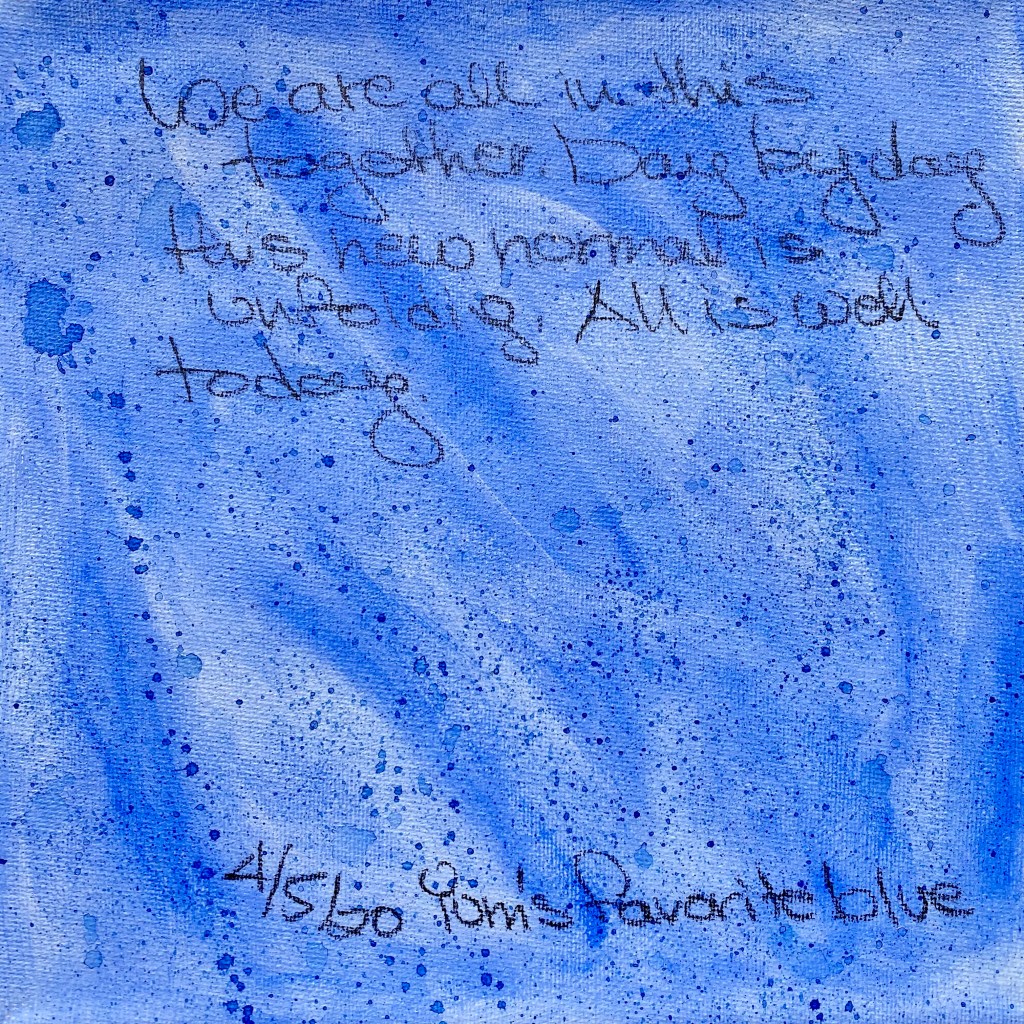 We are all in this
together. Day by day
this new normal is
unfoldig. All is well
today
4/5/20 Tom's favorite blue